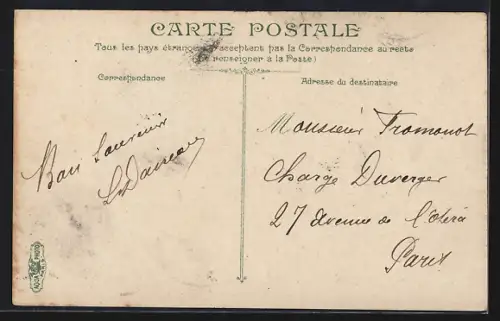 CARTE POSTALE
Tous les pays étrangers n'acceptent pas la Correspondance au recto
(Se renseigner à la Poste)
Correspondance
Adresse du destinataire
Bon Souvenir
Monsieur Fromonot
Charge Duverger
27 Avenue de l'Opéra
Paris